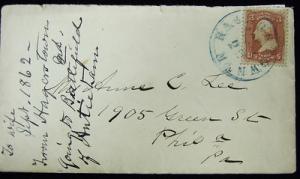 To wife
Sept. 1862 –
From Hagerstown
Md.
Going to Battlefield
of Antietam
Anne C. Lee
1905 Green St
Phila
Pa
HAG